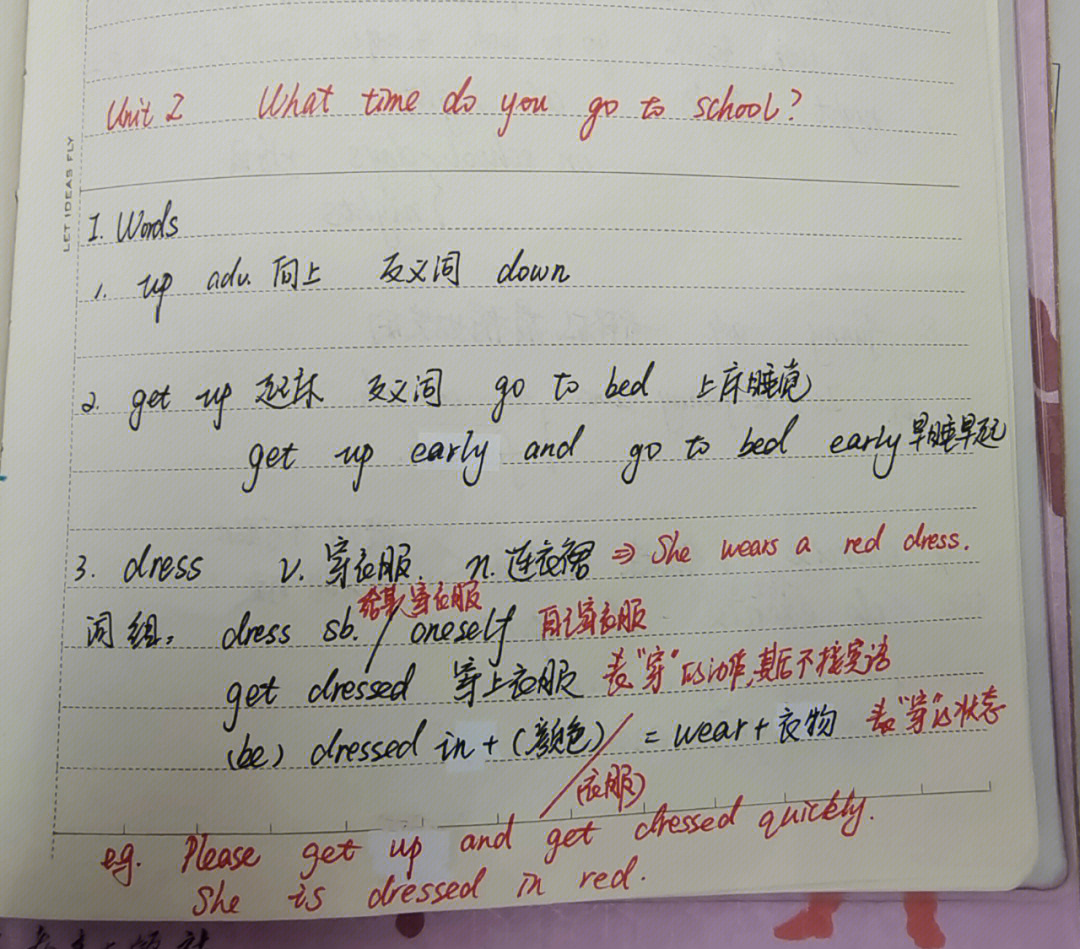 LET IDEAS FLY
Unit 2 What time do you go to school?
I. Words
1. up adv. 向上 反义词 down
2. get up 起床 反义词 go to bed 上床睡觉
get up early and go to bed early 早睡早起
3. dress v. 穿衣服. n. 连衣裙 ⇒ She wears a red dress.
给某人穿衣服
词组: dress sb. / oneself 自己穿衣服
get dressed 穿上衣服 表"穿"的动作,其后不接宾语
(be) dressed in + (颜色) / = wear + 衣物 表"穿"的状态
(衣服)
eg. Please get up and get dressed quickly.
She is dressed in red.